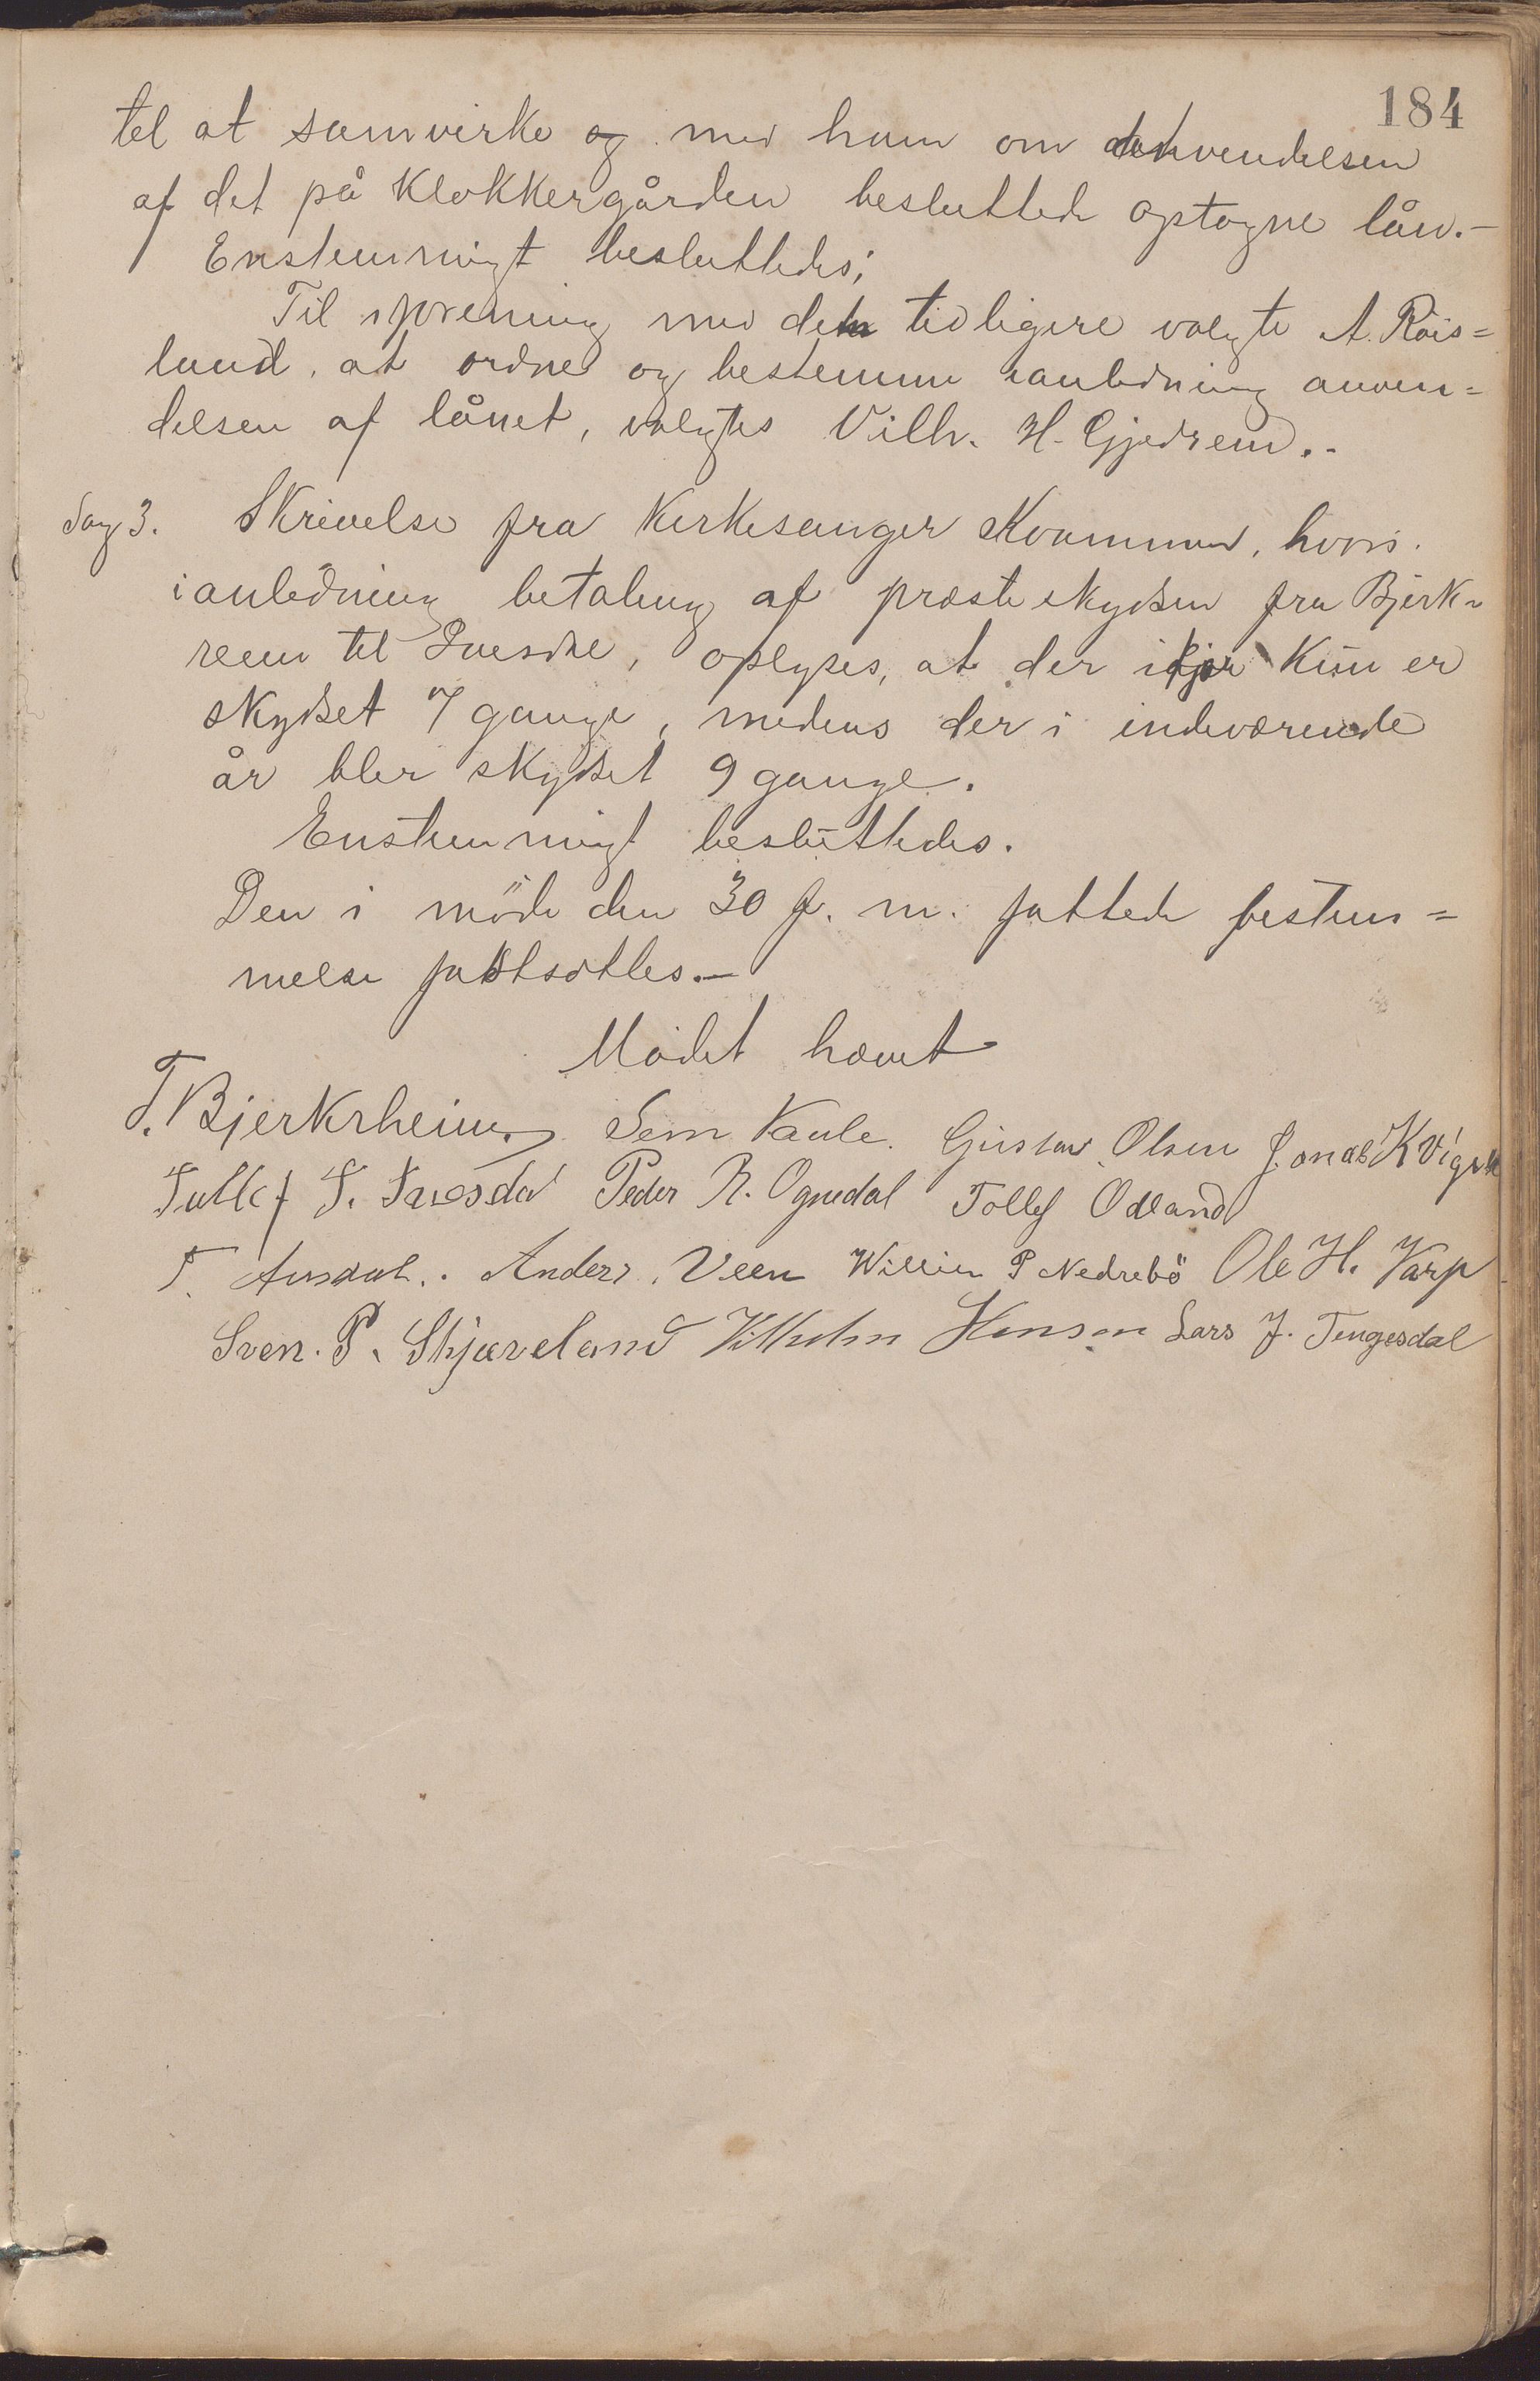 184
til at samvirke og med ham om anvendelsen
af det på Klokkergården besluttede optagne lån.-
Enstemmigt besluttedes;
Til iforening med den tidligere valgte A. Røis=
lund, at ordne og bestemme ianledning anven=
delsen af lånet, valgtes Vilh. H. Gjedrem..
Sag 3. Skrivelse fra Kirkesanger Kvammen, hvori
ianledning betaling af præsteskydsen fra Bjerk-
reim til Ivesdal, oplyses, at der ifjor Kun er
skydset 7 gange, medens der i indeværende
år blir skydset 9 gange.
Enstemmigt besluttedes.
Den i møde den 30 f. m. fattede bestem=
melse fastsættes.-
Mødet hævet
T. Bjerkrheim. Sem Vaule. Gustav Olsen Jonas K Vigesk
Tollef T. Ivesdal Peder R. Ognedal Tollef Odland
T. Ausdal. Anders Veen Willien P Nedrebö Ole H. Varp
Sven. P. Skjæveland Vilhelm Hanson Lars J. Tengesdal